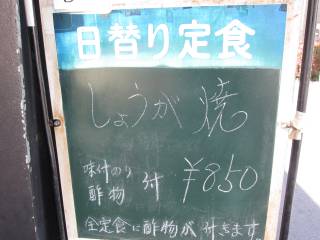 日替り定食
しょうが焼
味付のり
酢物 付 ¥850
全定食に酢物が付きます